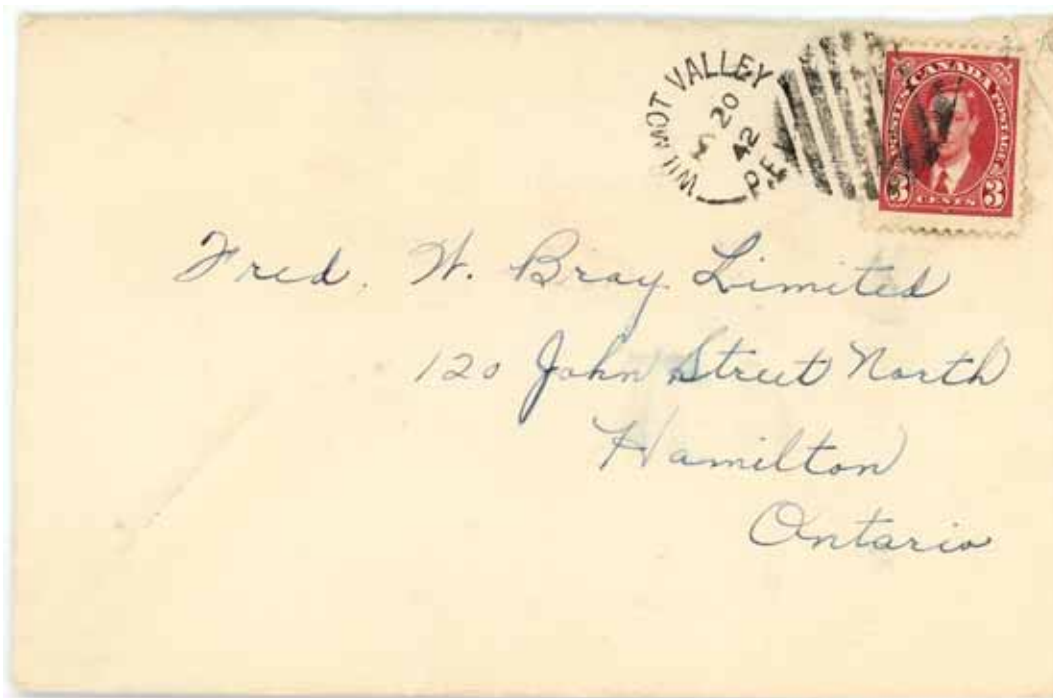 WILMOT VALLEY
20
42
P.E.I.
POSTES CANADA POSTAGE
3 CENTS 3
Fred. W. Bray Limited
120 John Street North
Hamilton
Ontario